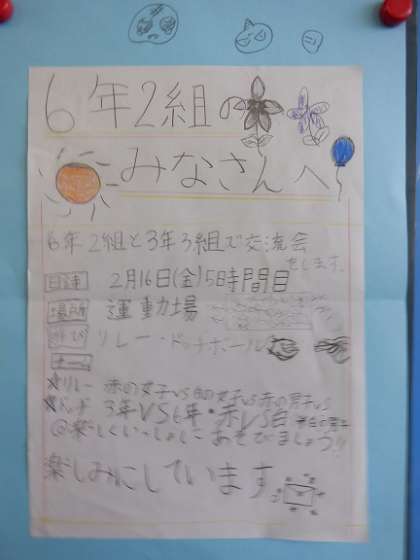 6年2組の
みなさんへ
6年2組と3年3組で交流会
をします。
日時 2月16日(金)5時間目
場所 運動場
リレー・ドッチボール
☆リレー 赤の女子VS白の女子VS赤の男子VS
白の男子
☆ドッヂ 3年VS6年・赤VS白
◎楽しくいっしょにあそびましょう!!
楽しみにしています。